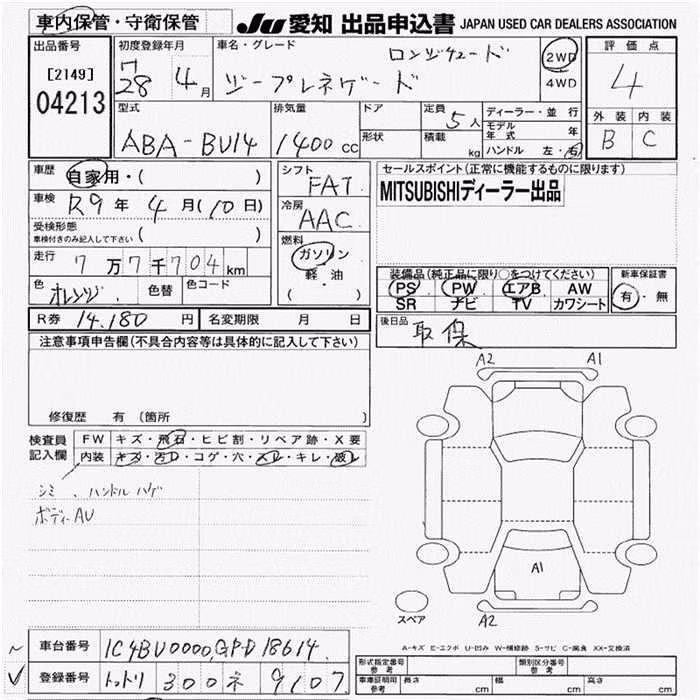 車内保管・守衛保管
JU 愛知 出品申込書 JAPAN USED CAR DEALERS ASSOCIATION
出品番号
[2149]
04213
初度登録年月
28 4月
車名・グレード
ロンジチュード
ジープレネゲード
2WD
4WD
評価点
4
外装 内装
B C
型式
ABA-BU14
排気量
1400cc
ドア
形状
定員 5人
積載 kg
ディーラー・並行
モデル年式 年
ハンドル 左・右
車歴 自家用・( )
車検 R9年4月(10日)
受検形態
車検付きのみ記入して下さい ( )
走行 7万7千704km
色 オレンジ 色替 色コード
シフト
FAT
冷房
AAC
燃料
ガソリン
軽油
( ・ )
セールスポイント(正常に機能するものに限ります)
MITSUBISHIディーラー出品
装備品(純正品に限り○をつけてください)
PS PW エアB AW
SR ナビ TV カワシート
新車保証書
有・無
R券 14,180円 名変期限 月 日
後日品 取保
注意事項申告欄(不具合内容等は具体的に記入して下さい)
修復歴 有(箇所 )
検査員記入欄
FW キズ・飛石・ヒビ割・リペア跡・X要
内装 キズ・汚れ・コゲ・穴・スレ・キレ・破レ
シミ、ハンドルハゲ
ボディーAU
A2 A1
A1
A2
スペア
A-キズ E-エクボ U-凹み W-補修跡 S-サビ C-腐食 XX-交換済
車台番号 1C4BU0000GPD18614
登録番号 トットリ 300 ネ 9107
形式指定番号 参考
類別区分番号 参考
車庫証明用 参考 長さ cm 幅 cm 高さ cm